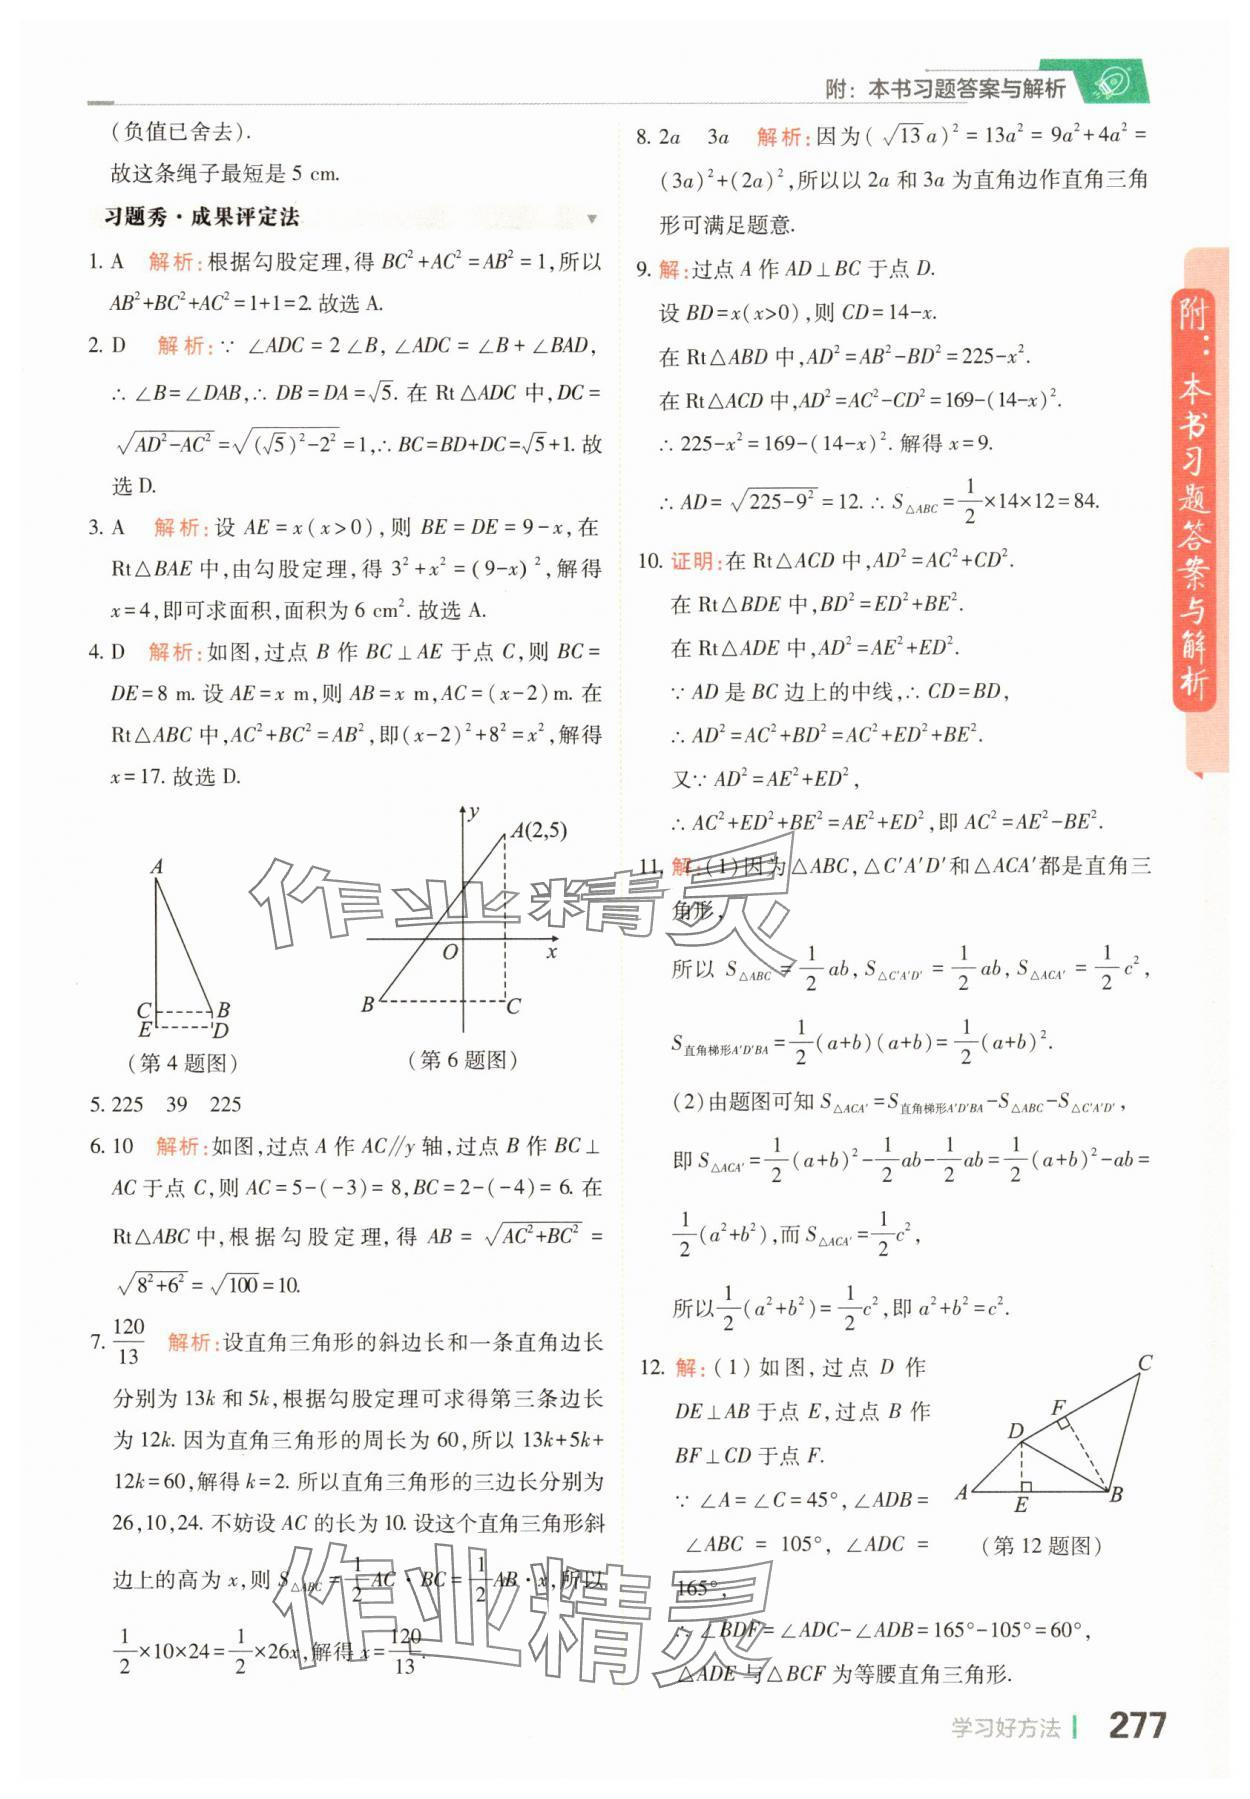 附：本书习题答案与解析
(负值已舍去).
故这条绳子最短是 5 cm.
习题秀·成果评定法
1. A 解析:根据勾股定理,得 BC²+AC²=AB²=1,所以
AB²+BC²+AC²=1+1=2.故选 A.
2. D 解析:∵ ∠ADC=2∠B,∠ADC=∠B+∠BAD,
∴ ∠B=∠DAB,∴ DB=DA=√5. 在 Rt△ADC 中,DC=
√(AD²-AC²)=√((√5)²-2²)=1,∴ BC=BD+DC=√5+1.故
选 D.
3. A 解析:设 AE=x(x>0),则 BE=DE=9-x,在
Rt△BAE 中,由勾股定理,得 3²+x²=(9-x)²,解得
x=4,即可求面积,面积为 6 cm². 故选 A.
4. D 解析:如图,过点 B 作 BC⊥AE 于点 C,则 BC=
DE=8 m. 设 AE=x m,则 AB=x m,AC=(x-2)m. 在
Rt△ABC 中,AC²+BC²=AB²,即(x-2)²+8²=x²,解得
x=17. 故选 D.
A
C
B
E
D
(第 4 题图)
y
A(2,5)
O
x
B
C
(第 6 题图)
5. 225 39 225
6. 10 解析:如图,过点 A 作 AC∥y 轴,过点 B 作 BC⊥
AC 于点 C,则 AC=5-(-3)=8,BC=2-(-4)=6. 在
Rt△ABC 中,根据勾股定理,得 AB=√(AC²+BC²)=
√(8²+6²)=√100=10.
7. 120/13 解析:设直角三角形的斜边长和一条直角边长
分别为 13k 和 5k,根据勾股定理可求得第三条边长
为 12k. 因为直角三角形的周长为 60,所以 13k+5k+
12k=60,解得 k=2. 所以直角三角形的三边长分别为
26,10,24. 不妨设 AC 的长为 10. 设这个直角三角形斜
边上的高为 x,则 S△ABC=1/2 AC·BC=1/2 AB·x,所以
1/2×10×24=1/2×26x,解得 x=120/13.
8. 2a 3a 解析:因为(√13 a)²=13a²=9a²+4a²=
(3a)²+(2a)²,所以以 2a 和 3a 为直角边作直角三角
形可满足题意.
9. 解:过点 A 作 AD⊥BC 于点 D.
设 BD=x(x>0),则 CD=14-x.
在 Rt△ABD 中,AD²=AB²-BD²=225-x².
在 Rt△ACD 中,AD²=AC²-CD²=169-(14-x)².
∴ 225-x²=169-(14-x)². 解得 x=9.
∴ AD=√(225-9²)=12. ∴ S△ABC=1/2×14×12=84.
10. 证明:在 Rt△ACD 中,AD²=AC²+CD².
在 Rt△BDE 中,BD²=ED²+BE².
在 Rt△ADE 中,AD²=AE²+ED².
∵ AD 是 BC 边上的中线,∴ CD=BD,
∴ AD²=AC²+BD²=AC²+ED²+BE².
又∵ AD²=AE²+ED²,
∴ AC²+ED²+BE²=AE²+ED²,即 AC²=AE²-BE².
11. 解:(1)因为△ABC,△C′A′D′和△ACA′都是直角三
角形,
所以 S△ABC=1/2 ab,S△C′A′D′=1/2 ab,S△ACA′=1/2 c²,
S直角梯形A′D′BA=1/2(a+b)(a+b)=1/2(a+b)².
(2)由题图可知 S△ACA′=S直角梯形A′D′BA-S△ABC-S△C′A′D′,
即 S△ACA′=1/2(a+b)²-1/2 ab-1/2 ab=1/2(a+b)²-ab=
1/2(a²+b²),而 S△ACA′=1/2 c²,
所以1/2(a²+b²)=1/2 c²,即 a²+b²=c².
12. 解:(1)如图,过点 D 作
DE⊥AB 于点 E,过点 B 作
BF⊥CD 于点 F.
∵ ∠A=∠C=45°,∠ADB=
∠ABC=105°,∠ADC=
165°,
∴ ∠BDF=∠ADC-∠ADB=165°-105°=60°,
△ADE 与△BCF 为等腰直角三角形.
C
F
D
A
E
B
(第 12 题图)
附：本书习题答案与解析
学习好方法 277
作业精灵
作业精灵